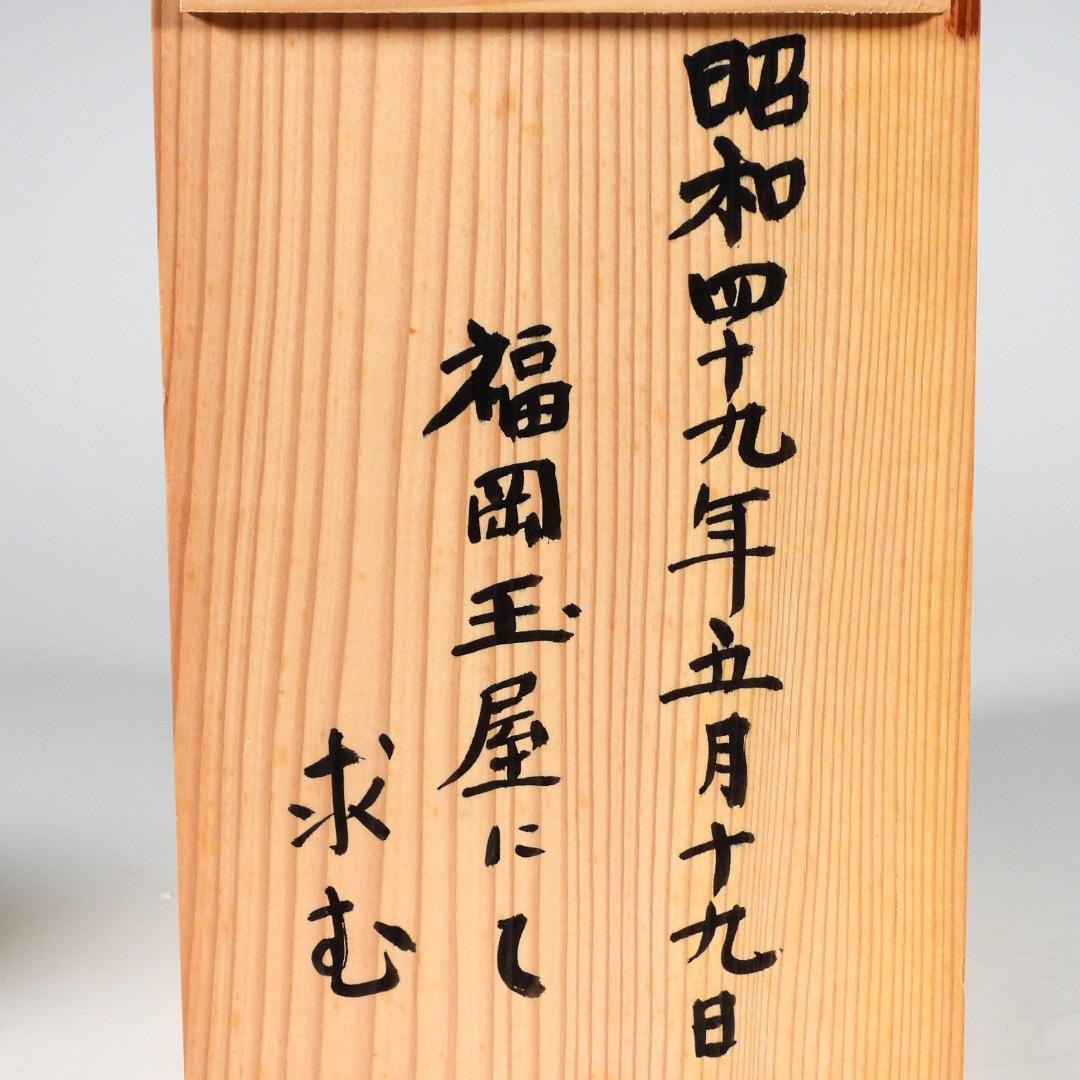 昭和四十九年五月十九日
福岡玉屋にて
求む